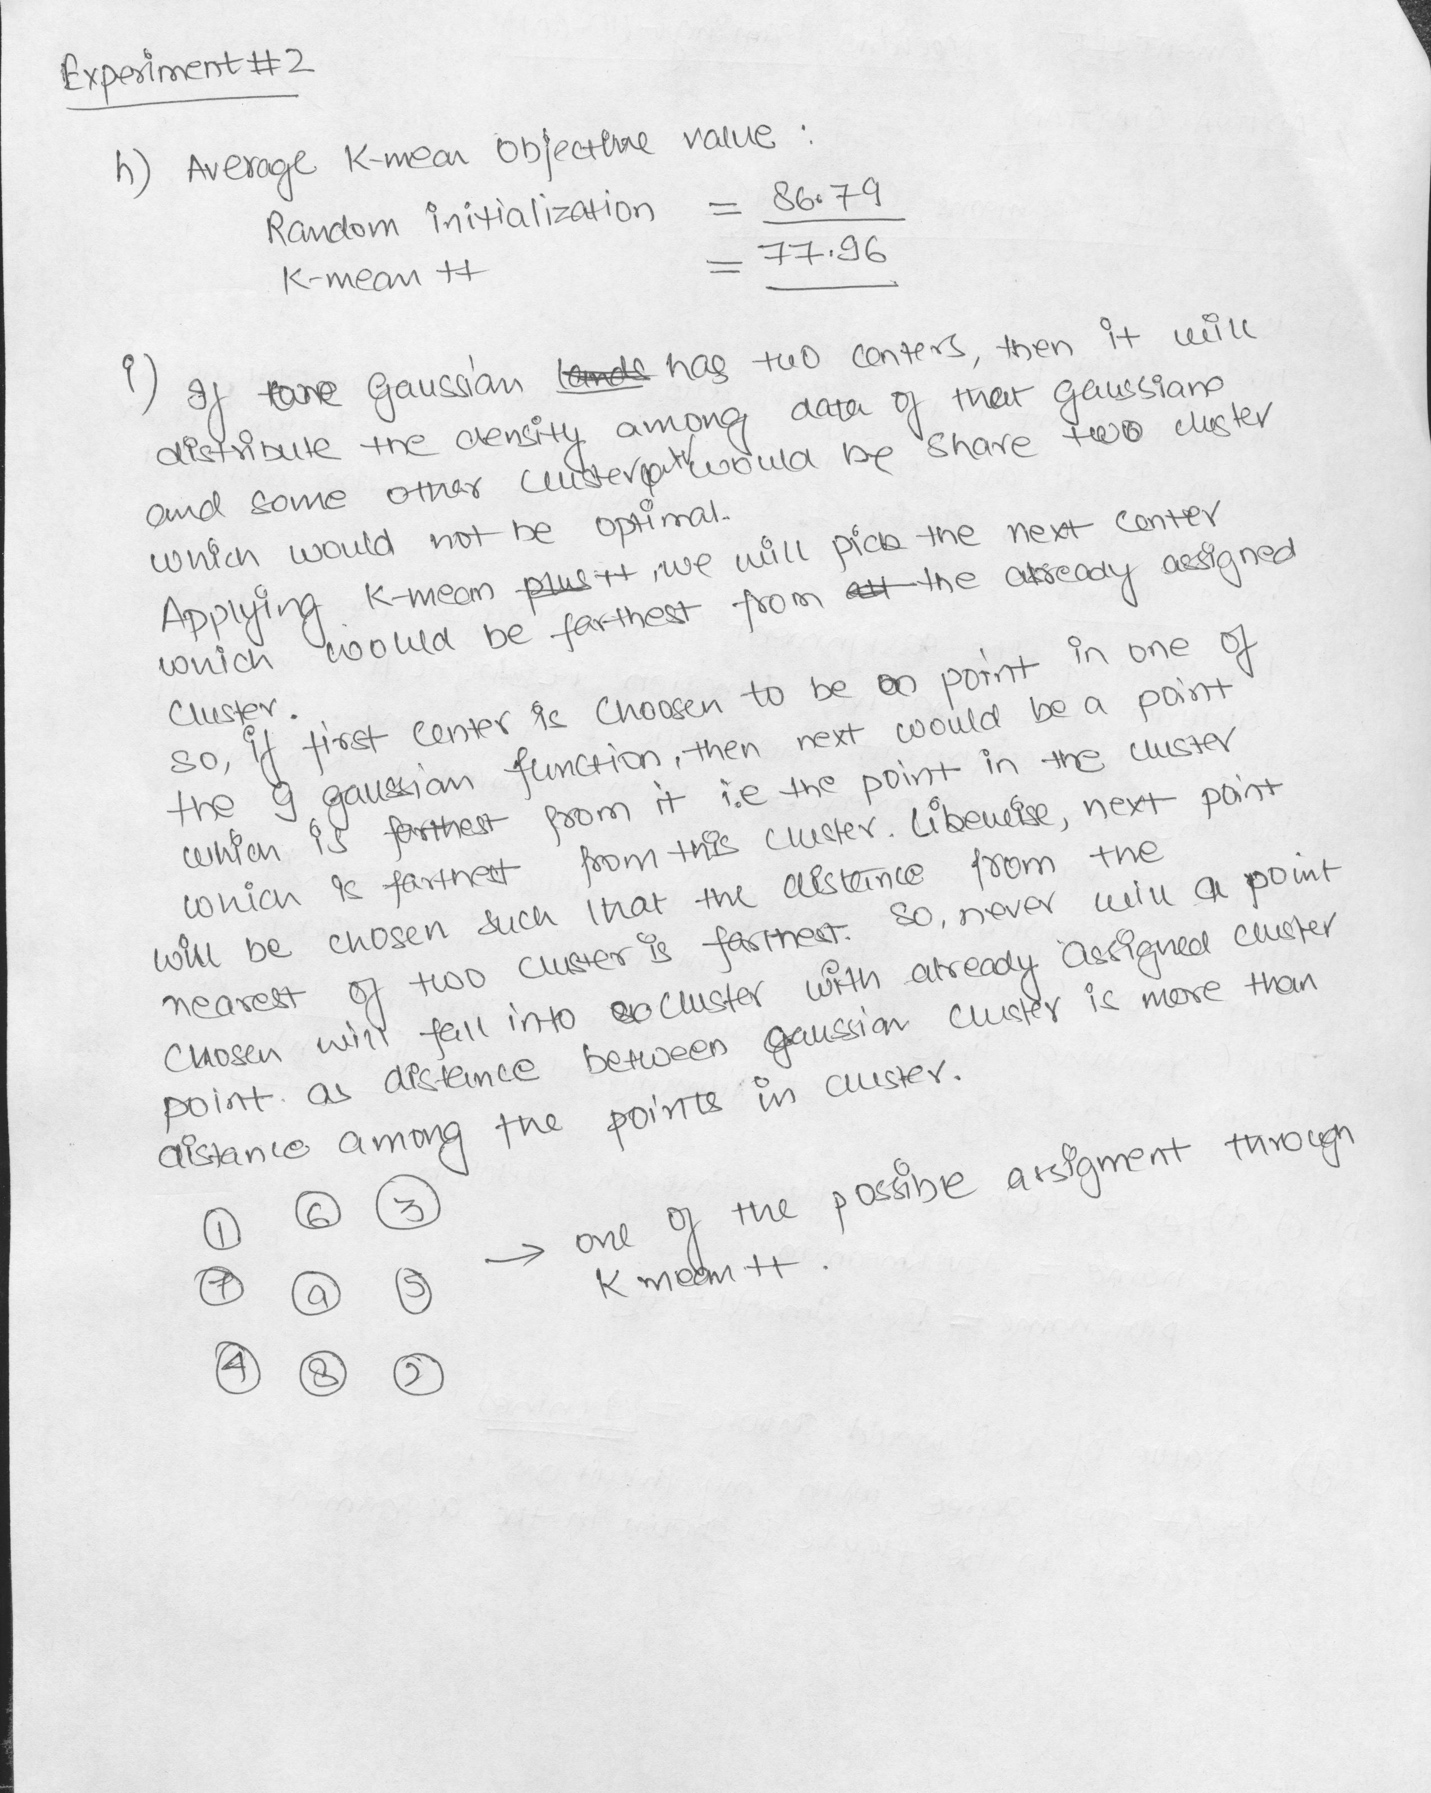 Experiment #2
h) Average K-mean Objective value :
Random initialization = 86.79
K-mean ++ = 77.96
i) If one Gaussian lands has two centers, then it will
distribute the density among data of that gaussians
and some other cluster would be share two cluster
which would not be optimal.
Applying K-mean plus ++, we will pick the next center
which would be farthest from all the already assigned
Cluster.
so, if first center is Choosen to be a point in one of
the 9 gaussian function, then next would be a point
which is farthest from it i.e the point in the cluster
which is farthest from this cluster. Likewise, next point
will be chosen such that the distance from the
nearest of two cluster is farthest. So, never will a point
Chosen will fall into cluster with already assigned cluster
point. as distance between gaussian cluster is more than
distance among the points in cluster.
1 6 3
→ one of the possible assigment through
K mean ++ .
7 9 5
4 8 2